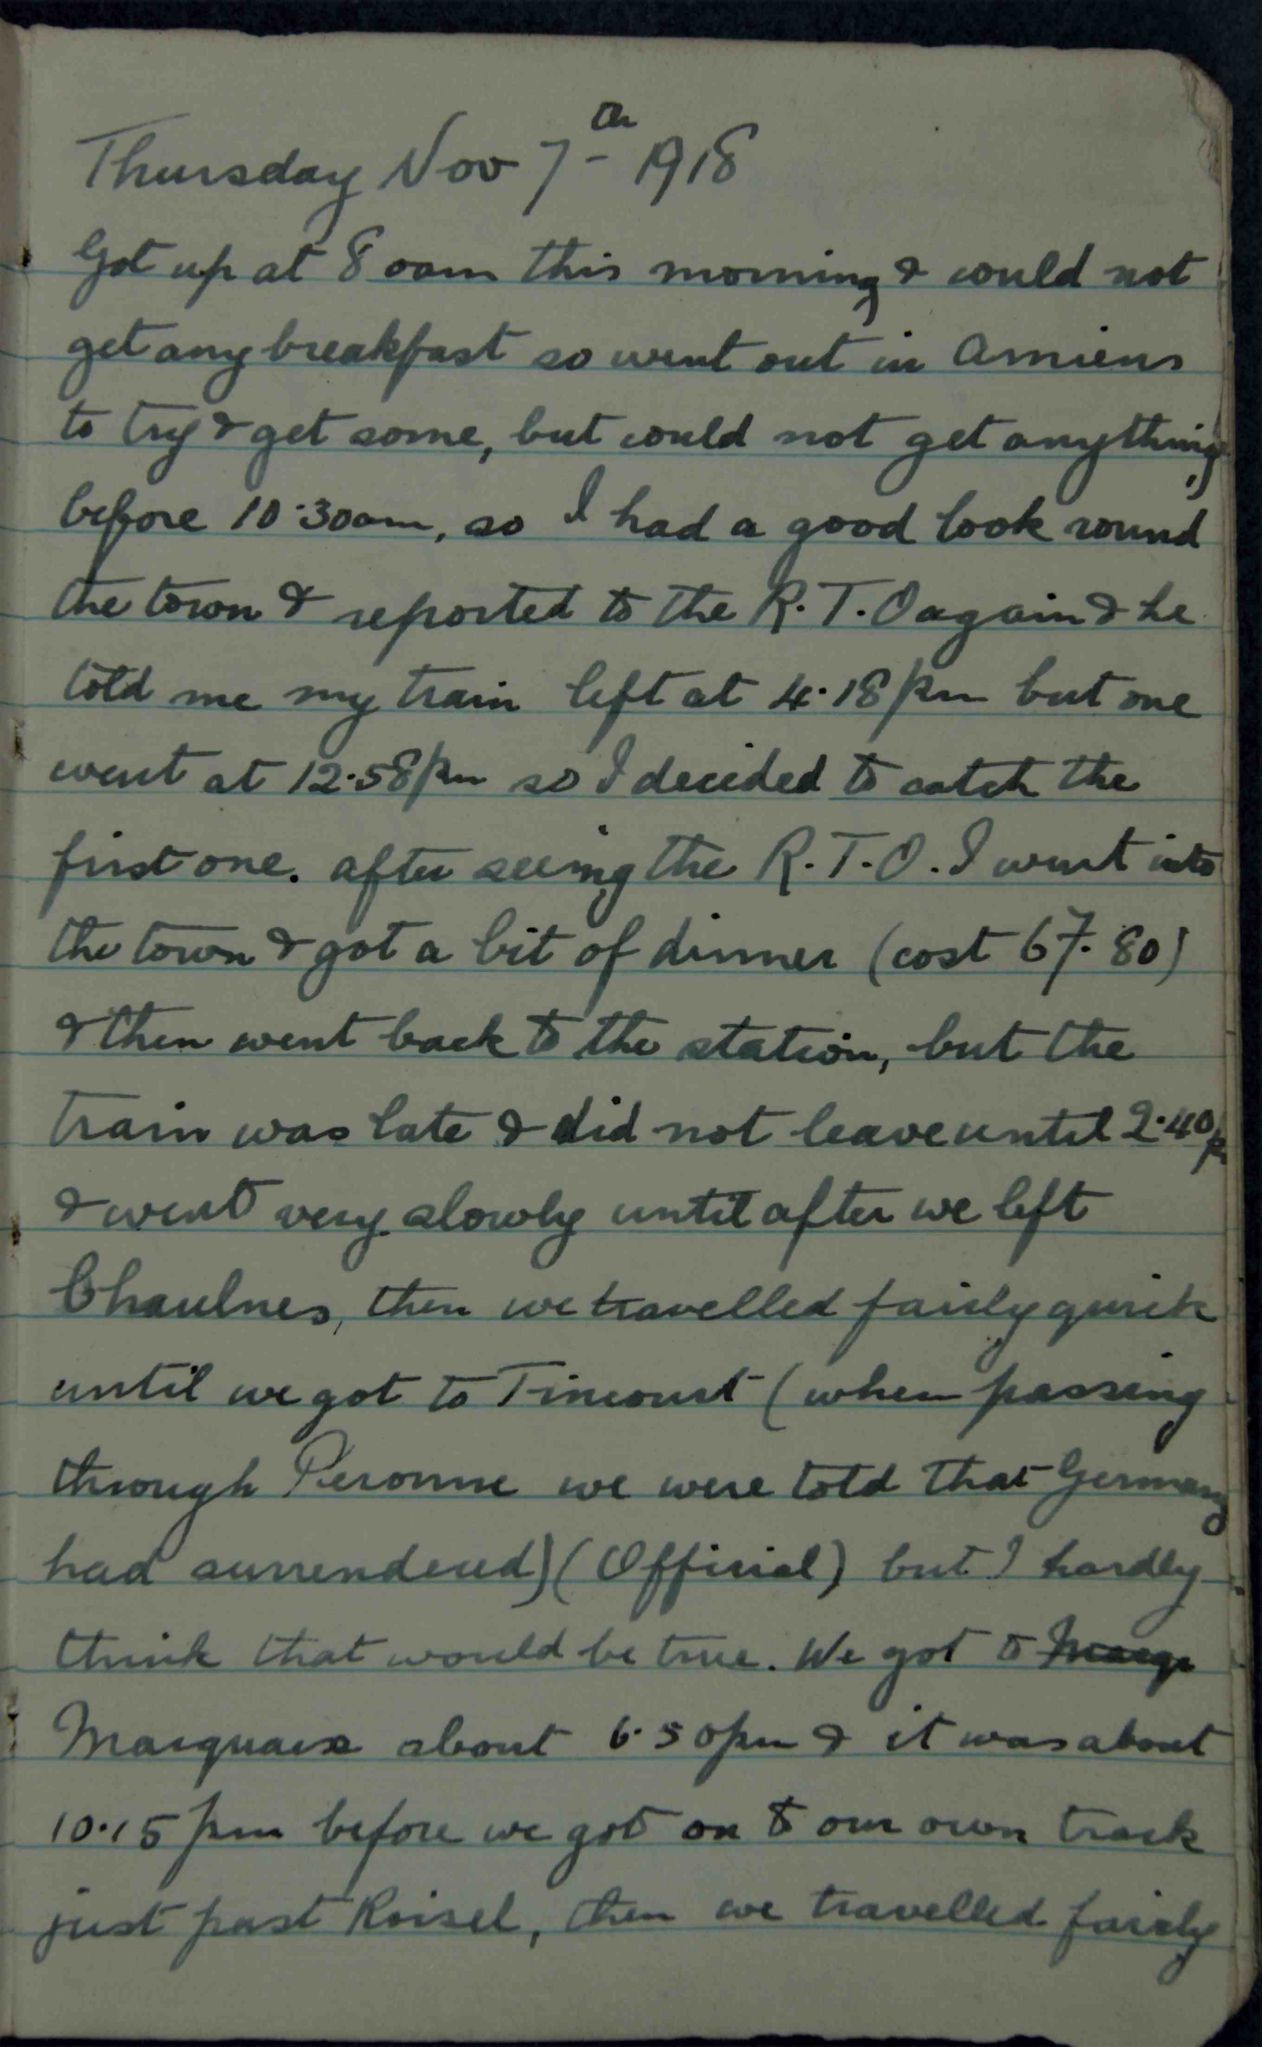 Thursday Nov 7th 1918
Got up at 8 oam this morning & could not
get any breakfast so went out in Amiens
to try & get some, but could not get anything
before 10.30am, so I had a good look round
the town & reported to the R.T.O again & he
told me my train left at 4.18pm but one
went at 12.58pm so I decided to catch the
first one. After seeing the R.T.O. I went into
the town & got a bit of dinner (cost 6f.80)
& then went back to the station, but the
train was late & did not leave until 2.40pm
& went very slowly until after we left
Chaulnes, then we travelled fairly quick
until we got to Tincourt (when passing
through Peronne we were told that Germany
had surrendered) (Official) but I hardly
think that would be true. We got to Marqu
Marquaix about 6.50pm & it was about
10.15 pm before we got on to our own track
just past Roisel, then we travelled fairly